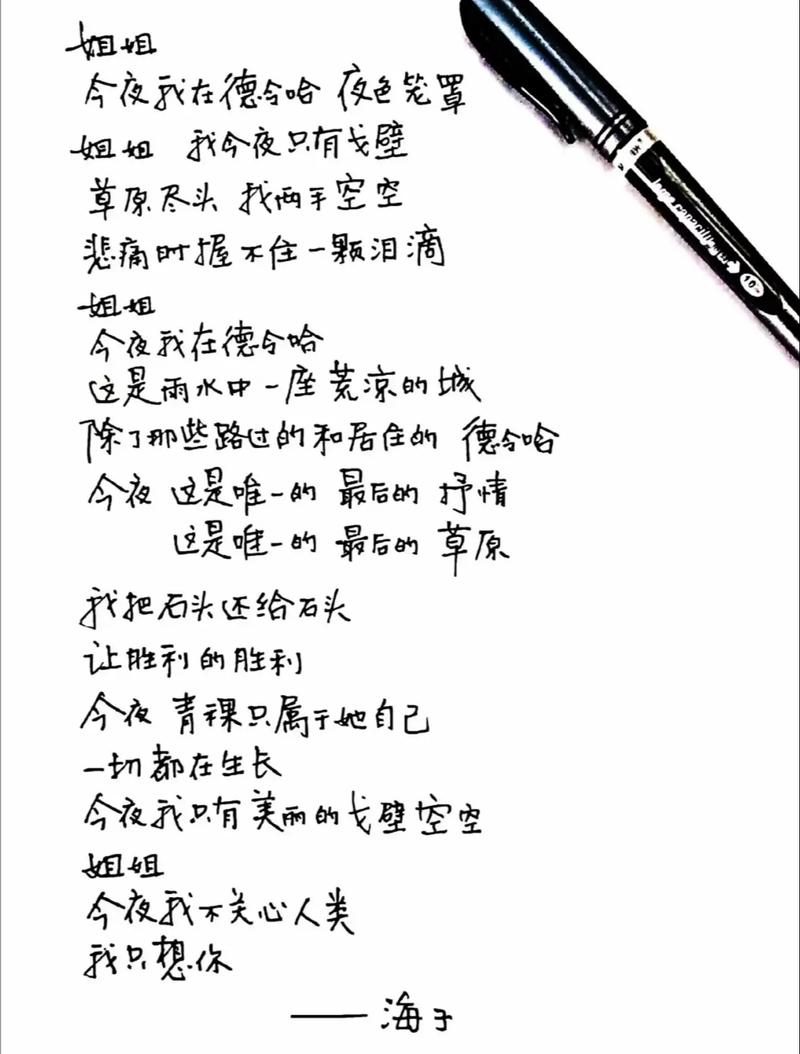 姐姐
今夜我在德令哈 夜色笼罩
姐姐 我今夜只有戈壁
草原尽头 我两手空空
悲痛时握不住一颗泪滴
姐姐
今夜我在德令哈
这是雨水中一座荒凉的城
除了那些路过的和居住的 德令哈
今夜 这是唯一的 最后的 抒情
这是唯一的 最后的 草原
我把石头还给石头
让胜利的胜利
今夜 青稞只属于她自己
一切都在生长
今夜我只有美丽的戈壁空空
姐姐
今夜我不关心人类
我只想你
——海子
large capacity